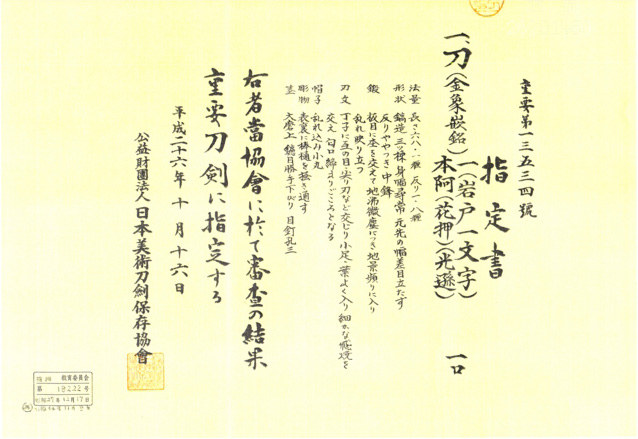 重要第一三五三四號
指定書
一、刀(金象嵌銘)一(岩戸一文字) 一口
本阿(花押)(光遜)
法量 長さ六八・一糎 反り一・八糎
形状 鎬造 三ツ棟 身幅尋常 元先の幅差目立たず
反りややつき 中鋒
鍛 板目に杢を交えて 地沸微塵につき 地景頻りに入り
乱れ映り立つ
刃文 丁子に互の目・尖り刃など交じり 小足・葉よく入り 細かな飛焼を
交え 匂口締まりごころとなる
帽子 乱れ込み小丸
彫物 表裏に棒樋を掻き通す
茎 大磨上 鑢目勝手下がり 目釘孔三
右者當協會に於て審査の結果
重要刀剣に指定する
平成二十六年十月十六日
公益財團法人日本美術刀劍保存協會
教育委員会
第 号